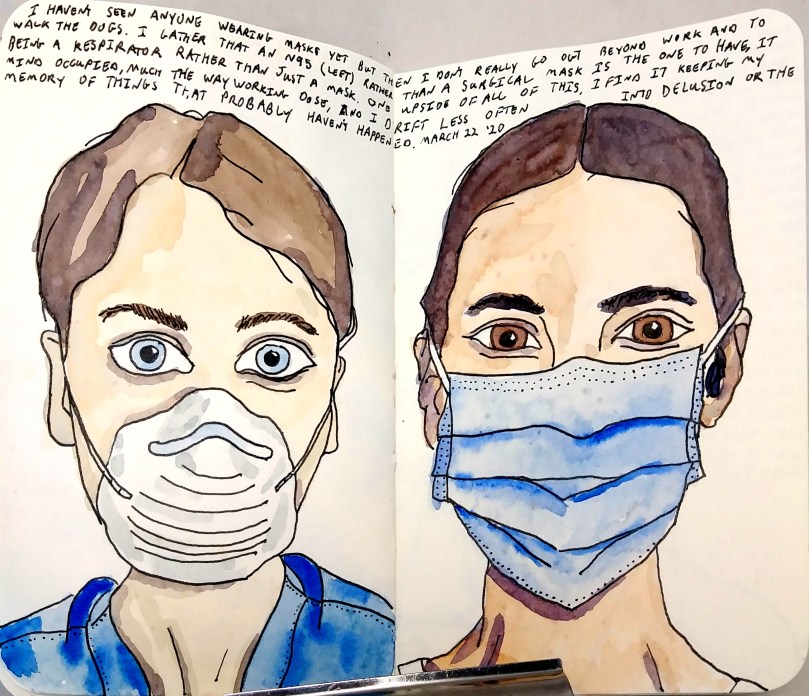 I HAVEN'T SEEN ANYONE WEARING MASKS YET BUT THEN I DON'T REALLY GO OUT BEYOND WORK AND TO
WALK THE DOGS. I GATHER THAT AN N95 (LEFT) RATHER THAN A SURGICAL MASK IS THE ONE TO HAVE, IT
BEING A RESPIRATOR RATHER THAN JUST A MASK. ONE UPSIDE OF ALL OF THIS, I FIND IT KEEPING MY
MIND OCCUPIED, MUCH THE WAY WORKING DOSE, AND I DRIFT LESS OFTEN INTO DELUSION OR THE
MEMORY OF THINGS THAT PROBABLY HAVEN'T HAPPENED. MARCH 22 '20